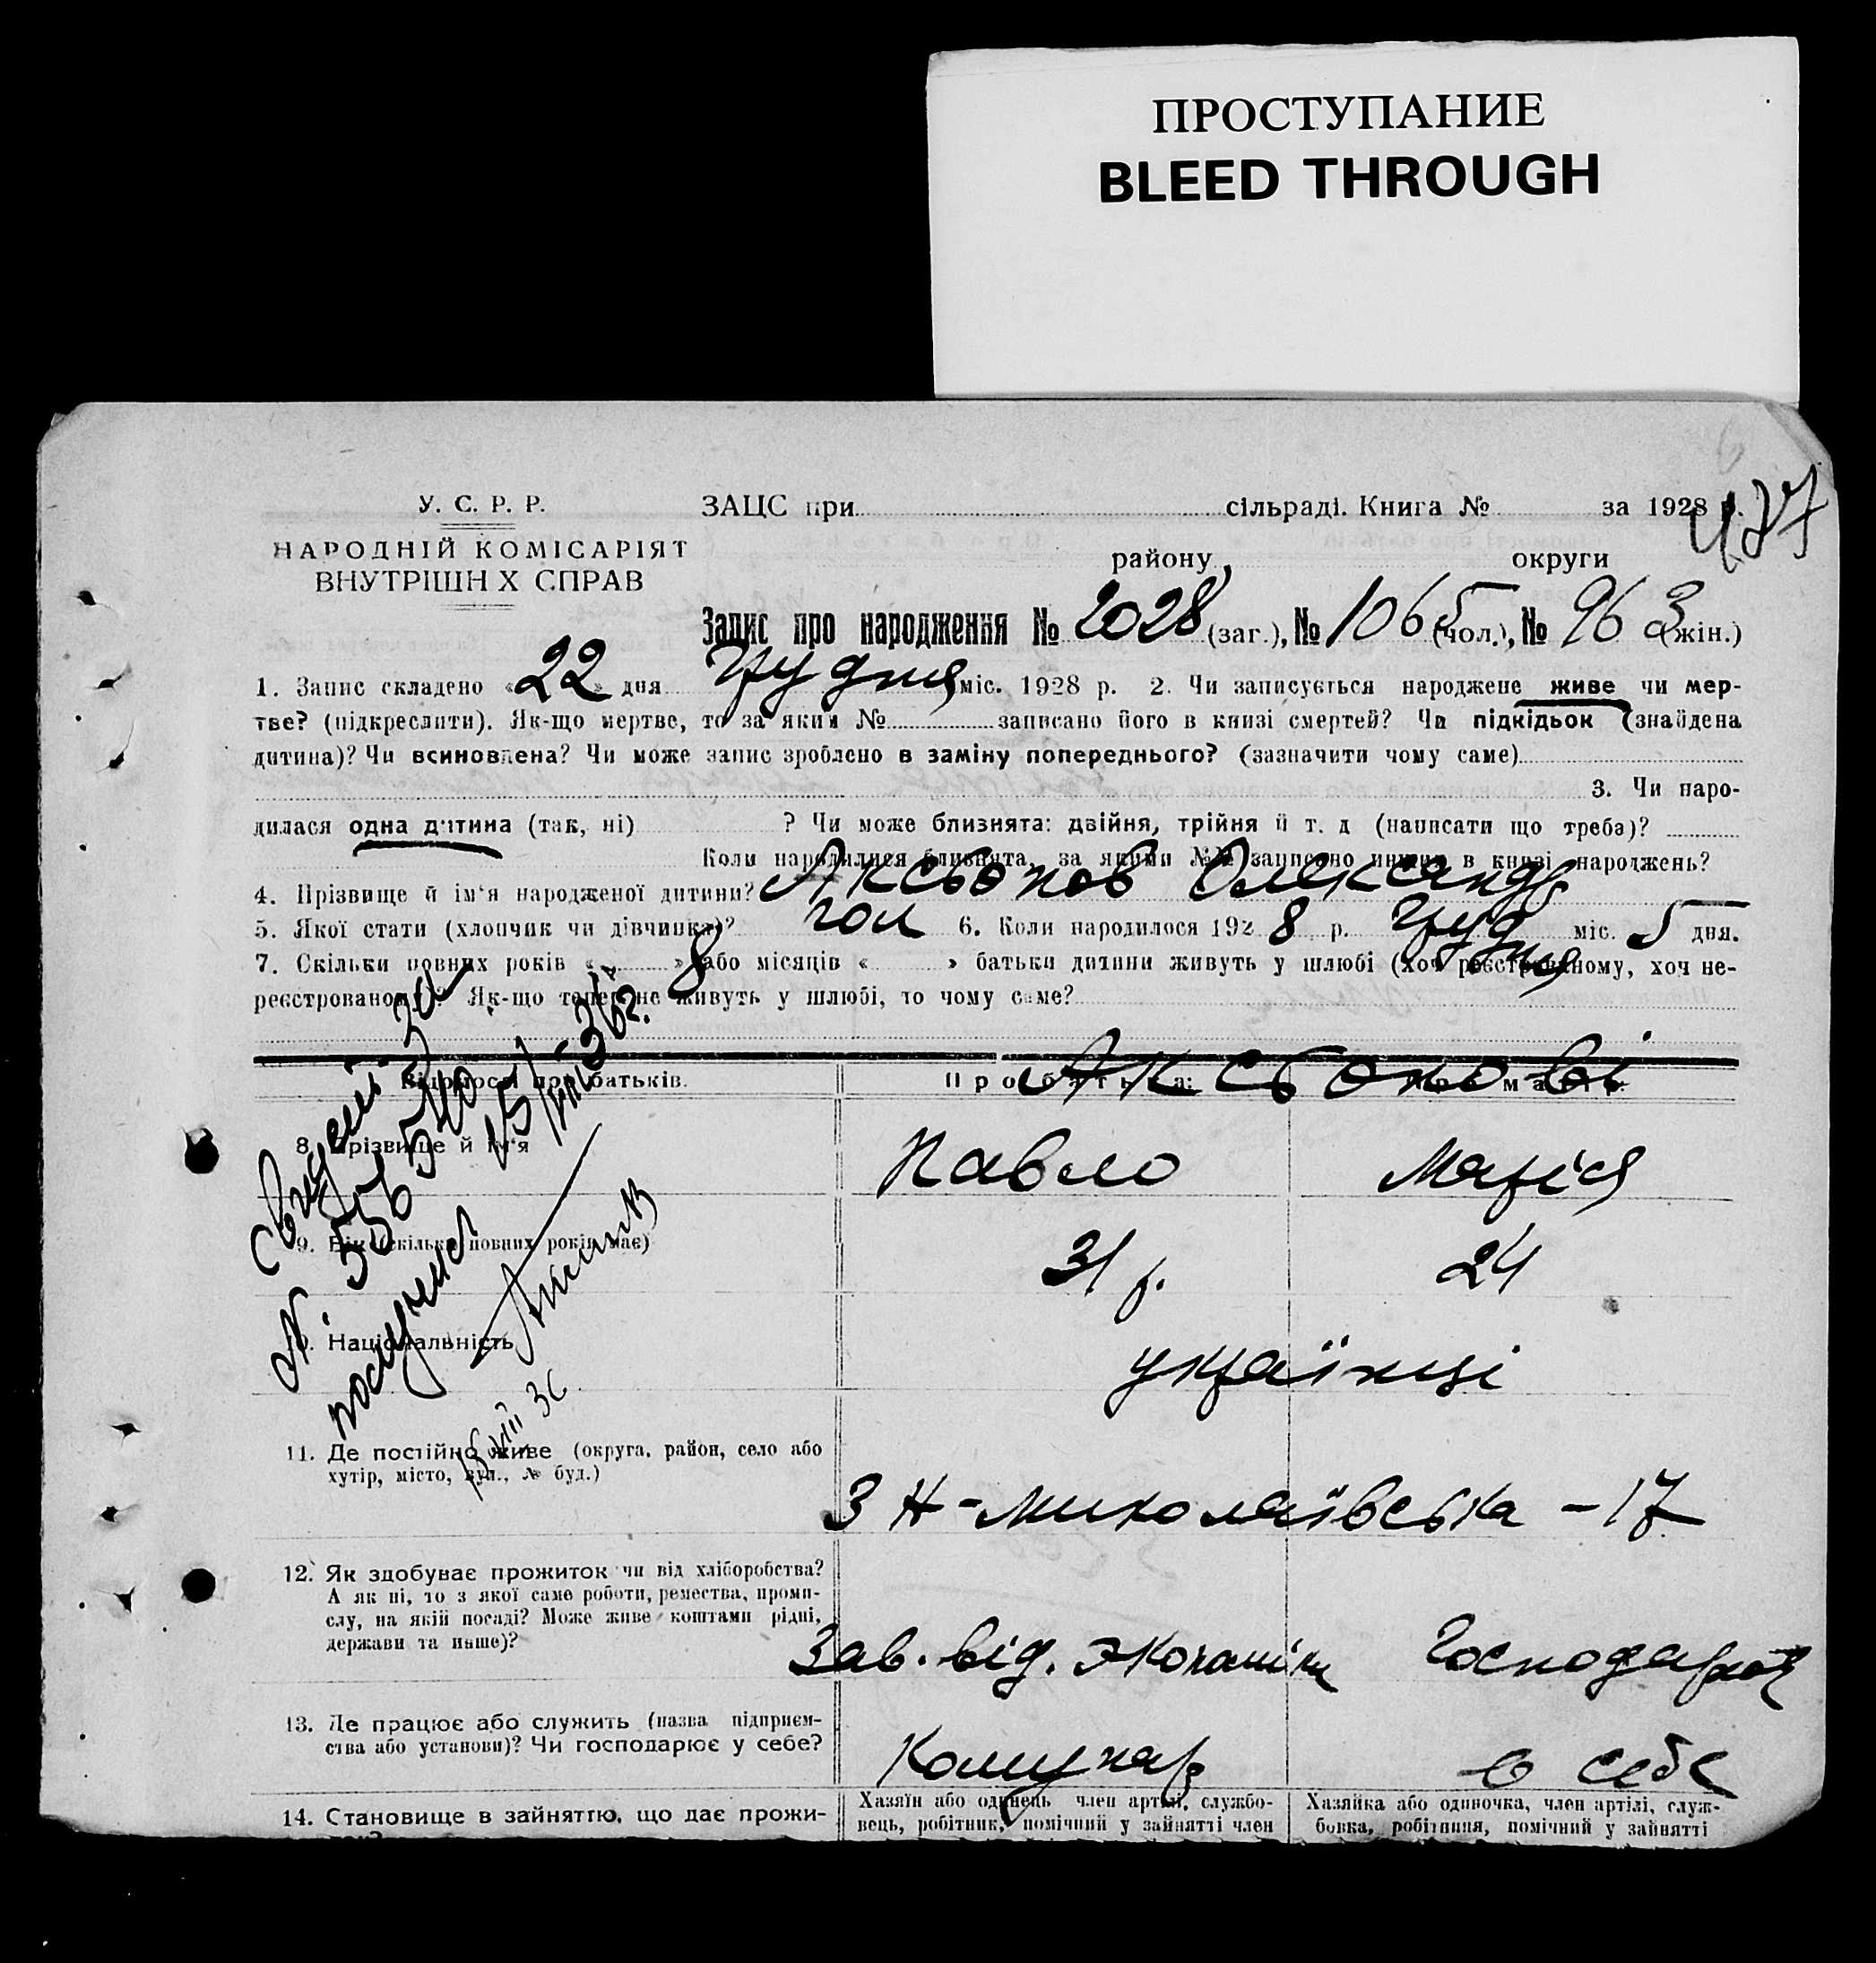 ПРОСТУПАНИЕ
BLEED THROUGH
427
У. С. Р. Р.
НАРОДНІЙ КОМІСАРІЯТ
ВНУТРІШН Х СПРАВ
ЗАЦС при сільраді. Книга № за 1928 р.
району округи
Запис про народження № 2028 (заг.), № 1065 (чол.), № 963 (жін.)
1. Запис складено «22» дня грудня міс. 1928 р. 2. Чи записується народжене живе чи мер-
тве? (підкреслити). Як-що мертве, то за яким № записано його в книзі смертей? Чи підкідьок (знайдена
дитина)? Чи всиновлена? Чи може запис зроблено в заміну попереднього? (зазначити чому саме)
3. Чи наро-
дилася одна дитина (так, ні) ? Чи може близнята: двійня, трійня й т. д (написати що треба)?
Коли народилися близнята, за якими №№ записано инших в книзі народжень?
4. Прізвище й ім‘я народженої дитини? Аксьонов Олександр
5. Якої статі (хлопчик чи дівчинка)? чол 6. Коли народилося 1928 р. грудня міс. 5 дня.
7. Скільки повних років « 8 » або місяців « » батьки дитини живуть у шлюбі (хоч реєстрованому, хоч не-
реєстрованому)? Як-що тепер не живуть у шлюбі, то чому саме?
Відомості про батьків. Про батька: Про матір:
Аксьонові
8. Прізвище й ім‘я Павло Марія
9. Вік (скільки повних років має) 31 р. 24
10. Національність українці
11. Де постійно живе (округа, район, село або
хутір, місто, вул., № буд.)
3 Н-Миколаївська - 17
12. Як здобуває прожиток чи від хліборобства?
А як ні, то з якої саме роботи, ремества, проми-
слу, на якій посаді? Може живе коштами рідні,
держави та инше)?
Зав. від. экономіки Господарює
13. Де працює або служить (назва підприєм-
ства або установи)? Чи господарює у себе?
Комунар в себе
14. Становище в зайняттю, що дає прожи-
Хазяїн або одинець член артілі, службо-
вець, робітник, помічний у зайнятті член
Хазяйка або одиночка, член артілі, служ-
бовка, робітниця, помічний у зайнятті
получил